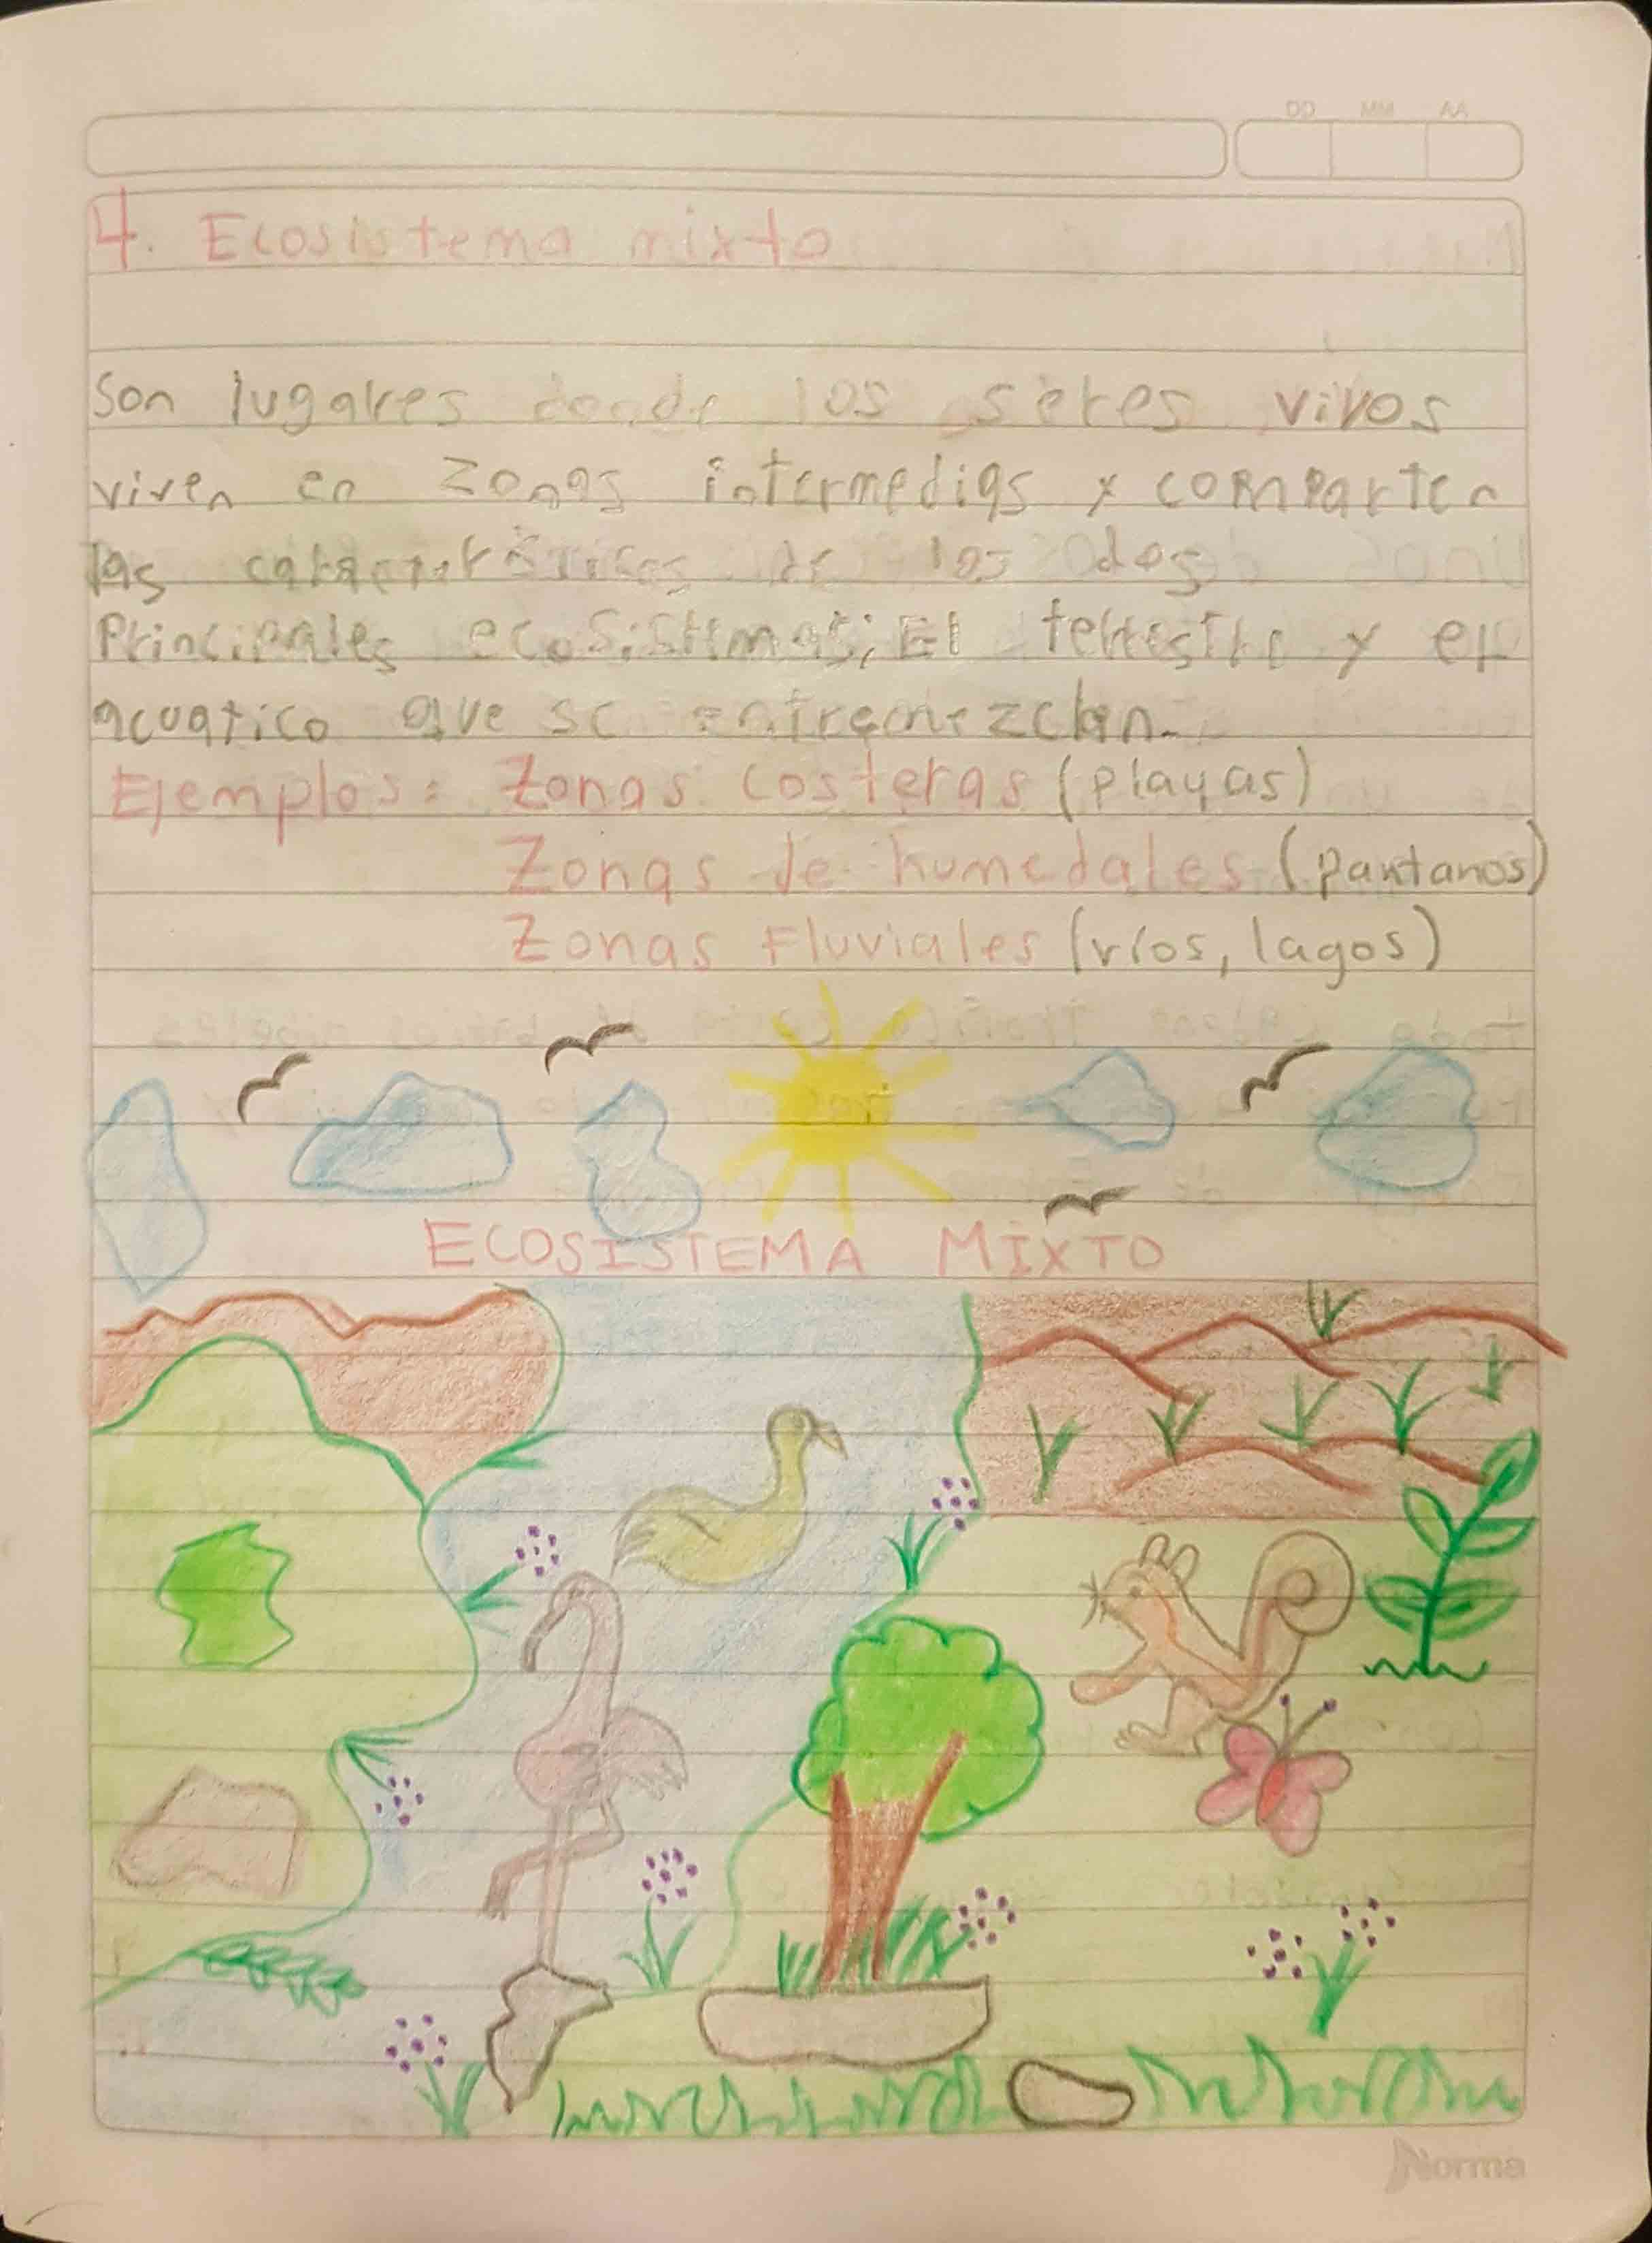 DD MM AA
4. Ecosistema mixto
Son lugares donde los seres vivos
viven en zonas intermedias y comparten
las características de los dos
Principales ecosistemas; El terrestre y el
acuatico que se entremezclan.
Ejemplos: Zonas costeras (playas)
Zonas de humedales (pantanos)
Zonas Fluviales (ríos, lagos)
ECOSISTEMA MIXTO
Norma